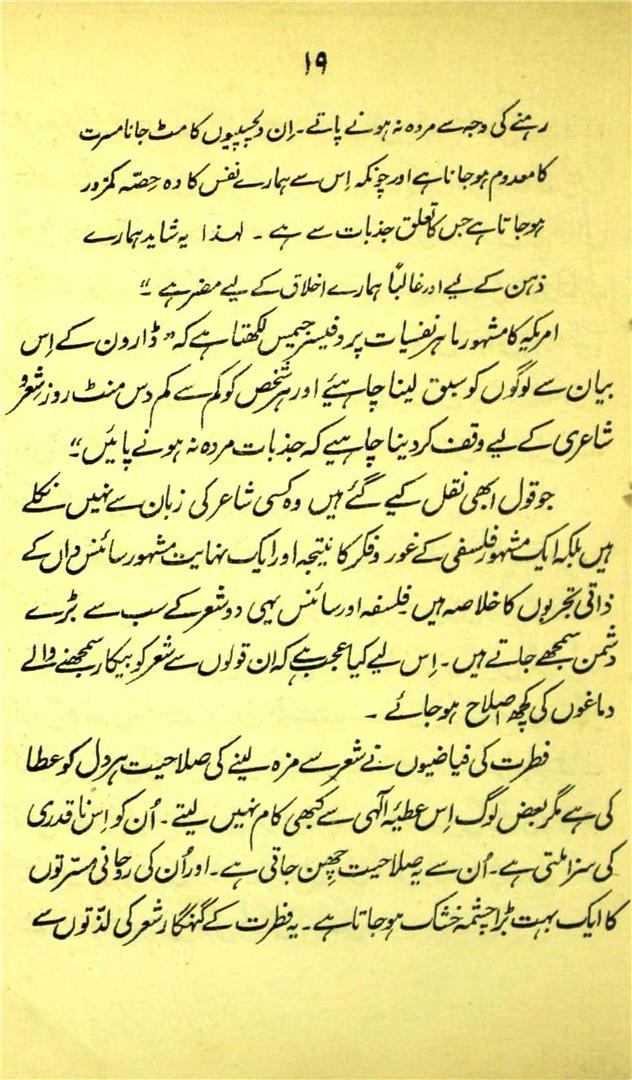 ۱۹
رہنے کی وجہ سے مردہ نہ ہونے پاتے۔ اِن دلچسپیوں کا مٹ جانا مسرت
کا معدوم ہو جانا ہے اور چونکہ اِس سے ہمارے نفس کا وہ حصّہ کمزور
ہو جاتا ہے جس کا تعلق جذبات سے ہے ۔ لہٰذا یہ شاید ہمارے
ذہن کے لیے اور غالباً ہمارے اخلاق کے لیے مضر ہے ۔"
امریکہ کا مشہور ماہر نفسیات پروفیسر جیمس لکھتا ہے کہ "ڈارون کے اِس
بیان سے لوگوں کو سبق لینا چاہیئے اور ہر شخص کو کم سے کم دس منٹ روز شعر و
شاعری کے لیے وقف کر دینا چاہیے کہ جذبات مردہ نہ ہونے پائیں۔"
جو قول ابھی نقل کیے گئے ہیں وہ کسی شاعر کی زبان سے نہیں نکلے
ہیں بلکہ ایک مشہور فلسفی کے غور و فکر کا نتیجہ اور ایک نہایت مشہور سائنس داں کے
ذاتی تجربوں کا خلاصہ ہیں۔ فلسفہ اور سائنس یہی دو شعر کے سب سے بڑے
دشمن سمجھے جاتے ہیں۔ اِس لیے کیا عجب ہے کہ ان قولوں سے شعر کو بیکار سمجھنے والے
دماغوں کی کچھ اصلاح ہو جائے ۔
فطرت کی فیاضیوں نے شعر سے مزہ لینے کی صلاحیت ہر دل کو عطا
کی ہے مگر بعض لوگ اِس عطیۂ الٰہی سے کبھی کام نہیں لیتے۔ اُن کو اِس ناقدری
کی سزا ملتی ہے۔ اُن سے یہ صلاحیت چھِن جاتی ہے۔ اور اُن کی روحانی مسرّتوں
کا ایک بہت بڑا چشمہ خشک ہو جاتا ہے۔ یہ فطرت کے گنہگار شعر کی لذّتوں سے